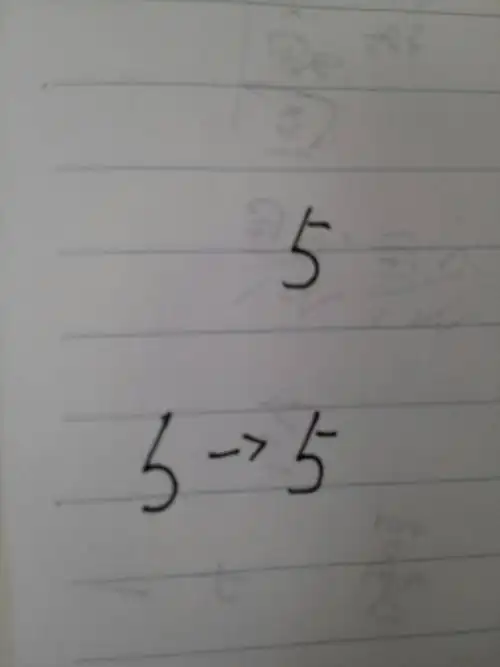 5
5 → 5